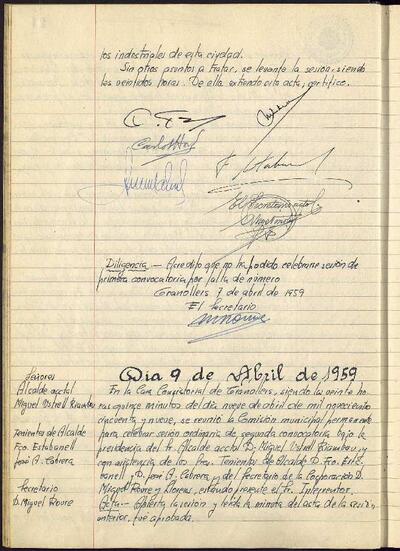 los industriales de esta ciudad.
Sin otros asuntos a tratar, se levanta la sesión, siendo
las veintidos horas. De ella extiendo esta acta, certifico.
El Secretario acctal.
Diligencia — Acredito que no ha podido celebrarse sesión de
primera convocatoria por falta de número
Granollers 7 de abril de 1959
El Secretario
Dia 9 de Abril de 1959
Señores
Alcalde acctal
Miguel Ustrell Riambau
Tenientes de Alcalde
Fco. Estabanell
José A. Cabrera
Secretario
D. Miguel Roure
En la Casa Consistorial de Granollers, siendo las veinte ho-
ras quince minutos del día nueve de abril de mil novecientos
cincuenta y nueve, se reunió la Comisión municipal permanente
para celebrar sesión ordinaria de segunda convocatoria bajo la
presidencia del Sr. Alcalde acctal D. Miguel Ustrell Riambau y
con asistencia de los Sres. Tenientes de Alcalde D. Fco. Esta-
banell y D. José A. Cabrera y del Secretario de la Corporación D.
Miguel Roure y Llorens, estando presente el Sr. Interventor.
Acta.- Abierta la sesión y leída la minuta del acta de la sesión
anterior, fue aprobada.